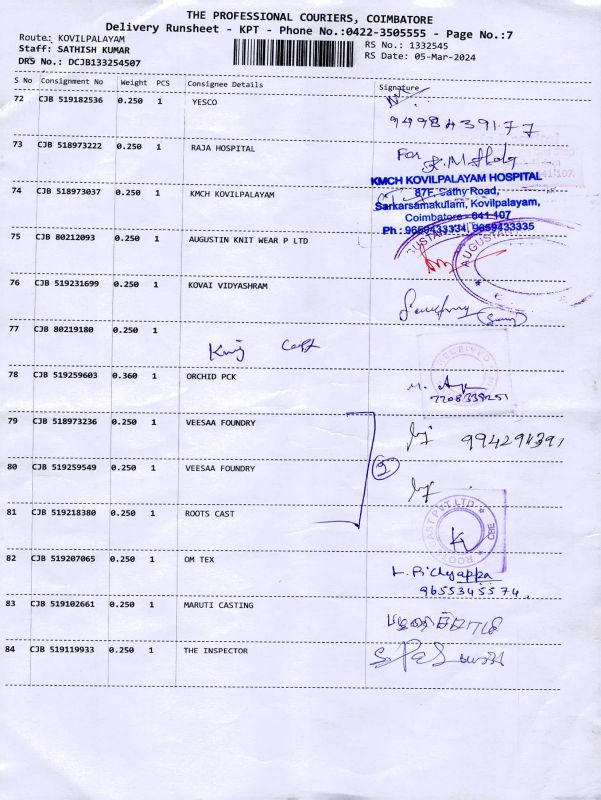 THE PROFESSIONAL COURIERS, COIMBATORE
Delivery Runsheet - KPT - Phone No.:0422-3505555 - Page No.:7
Route: KOVILPALAYAM
RS No.: 1332545
Staff: SATHISH KUMAR
RS Date: 05-Mar-2024
DRS No.: DCJB133254507
S No Consignment No Weight PCS Consignee Details Signature
72 CJB 519182536 0.250 1 YESCO
73 CJB 518973222 0.250 1 RAJA HOSPITAL For
KMCH KOVILPALAYAM HOSPITAL
74 CJB 518973037 0.250 1 KMCH KOVILPALAYAM 87F, Sathy Road,
Sarkarsamakulam, Kovilpalayam,
Coimbatore - 641 107
Ph : 9659433334, 9659433335
75 CJB 80212093 0.250 1 AUGUSTIN KNIT WEAR P LTD
76 CJB 519231699 0.250 1 KOVAI VIDYASHRAM
77 CJB 80219180 0.250 1
King Cast
78 CJB 519259603 0.360 1 ORCHID PCK
79 CJB 518973236 0.250 1 VEESAA FOUNDRY
80 CJB 519259549 0.250 1 VEESAA FOUNDRY
81 CJB 519218380 0.250 1 ROOTS CAST
ROOTS CAST PVT LTD
82 CJB 519207065 0.250 1 OM TEX
9655345574.
83 CJB 519102661 0.250 1 MARUTI CASTING
84 CJB 519119933 0.250 1 THE INSPECTOR